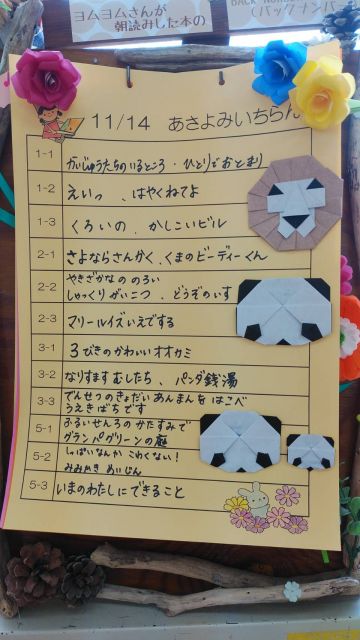 ヨムヨムさんが
朝読みした本の
(バックナンバー
11/14 あさよみいちらん
1-1 かいじゅうたちのいるところ・ひとりでおとまり
1-2 えいっ、はやくねてよ
1-3 くろいの、かしこいビル
2-1 さよならさんかく、くまのビーディーくん
2-2 やきざかなののろい
しゃっくりがいこつ、どうぞのいす
2-3 マリールイズいえでする
3-1 3びきのかわいいオオカミ
3-2 なりすますむしたち、パンダ銭湯
3-3 でんせつのきょだいあんまんをはこべ
うえきばちです
5-1 ふるいせんろのかたすみで
グランパグリーンの庭
5-2 しっぱいなんかこわくない!
みみかきめいじん
5-3 いまのわたしにできること